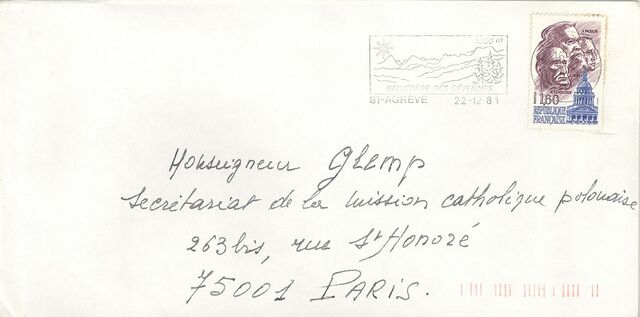 1050 m
BELVÉDÈRE DES CÉVENNES
ST-AGRÈVE 22-12 81
J. MOULIN
1,60
RÉPUBLIQUE
FRANÇAISE
Monseigneur Glemp
Secrétariat de la mission catholique polonaise
263 bis, rue St Honoré
75001 PARIS.